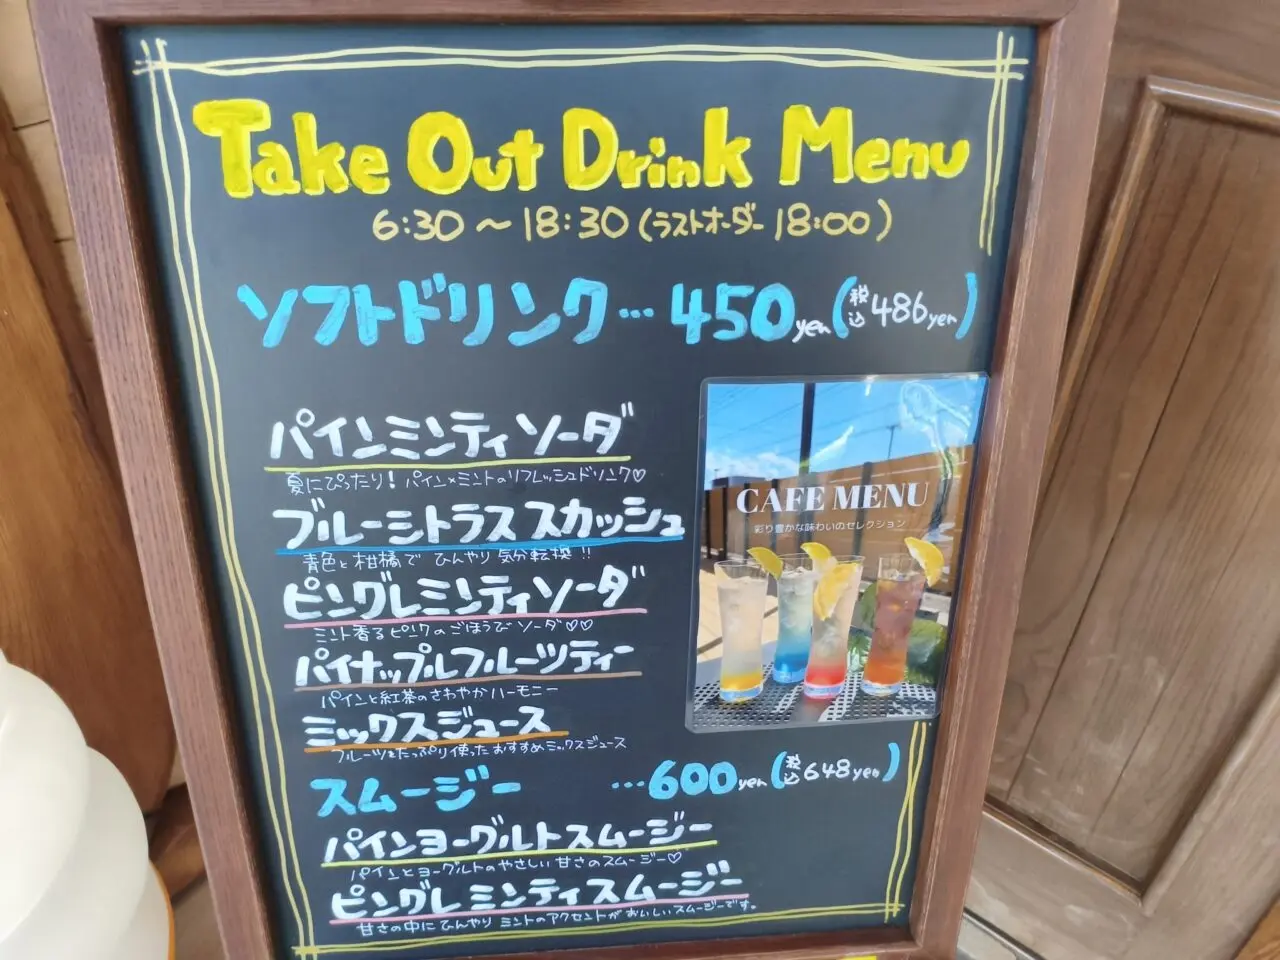 Take Out Drink Menu
6:30〜18:30(ラストオーダー 18:00)
ソフトドリンク…450yen(税込486yen)
パインミンティソーダ
夏にぴったり!パイン×ミントのリフレッシュドリンク♡
ブルーシトラススカッシュ
青色と柑橘でひんやり気分転換!!
ピングレミンティソーダ
ミント香るピンクのごほうびソーダ♡♡
パイナップルフルーツティー
パインと紅茶のさわやかハーモニー
ミックスジュース
フルーツをたっぷり使ったおすすめミックスジュース
CAFE MENU
彩り豊かな味わいのセレクション
スムージー …600yen(税込648yen)
パインヨーグルトスムージー
パインとヨーグルトのやさしい甘さのスムージー♡
ピングレミンティスムージー
甘さの中にひんやりミントのアクセントがおいしいスムージーです。